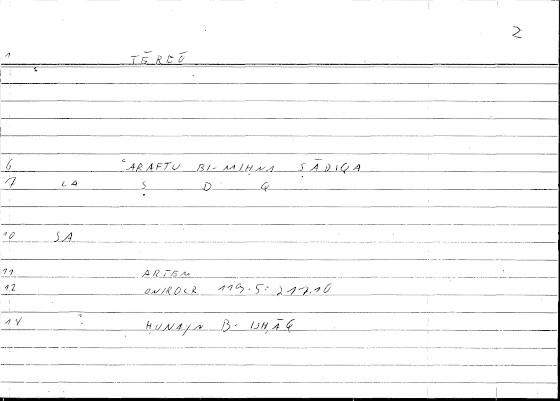 2
1 TĒREŌ
6 ʿARAFTU BI-MIḤNA ṢĀDIQA
7 LA Ṣ D Q
10 SA
11 ARTEM
12 ONIROCR 119.5: 217.10
14 ḤUNAYN B. ISḤĀQ